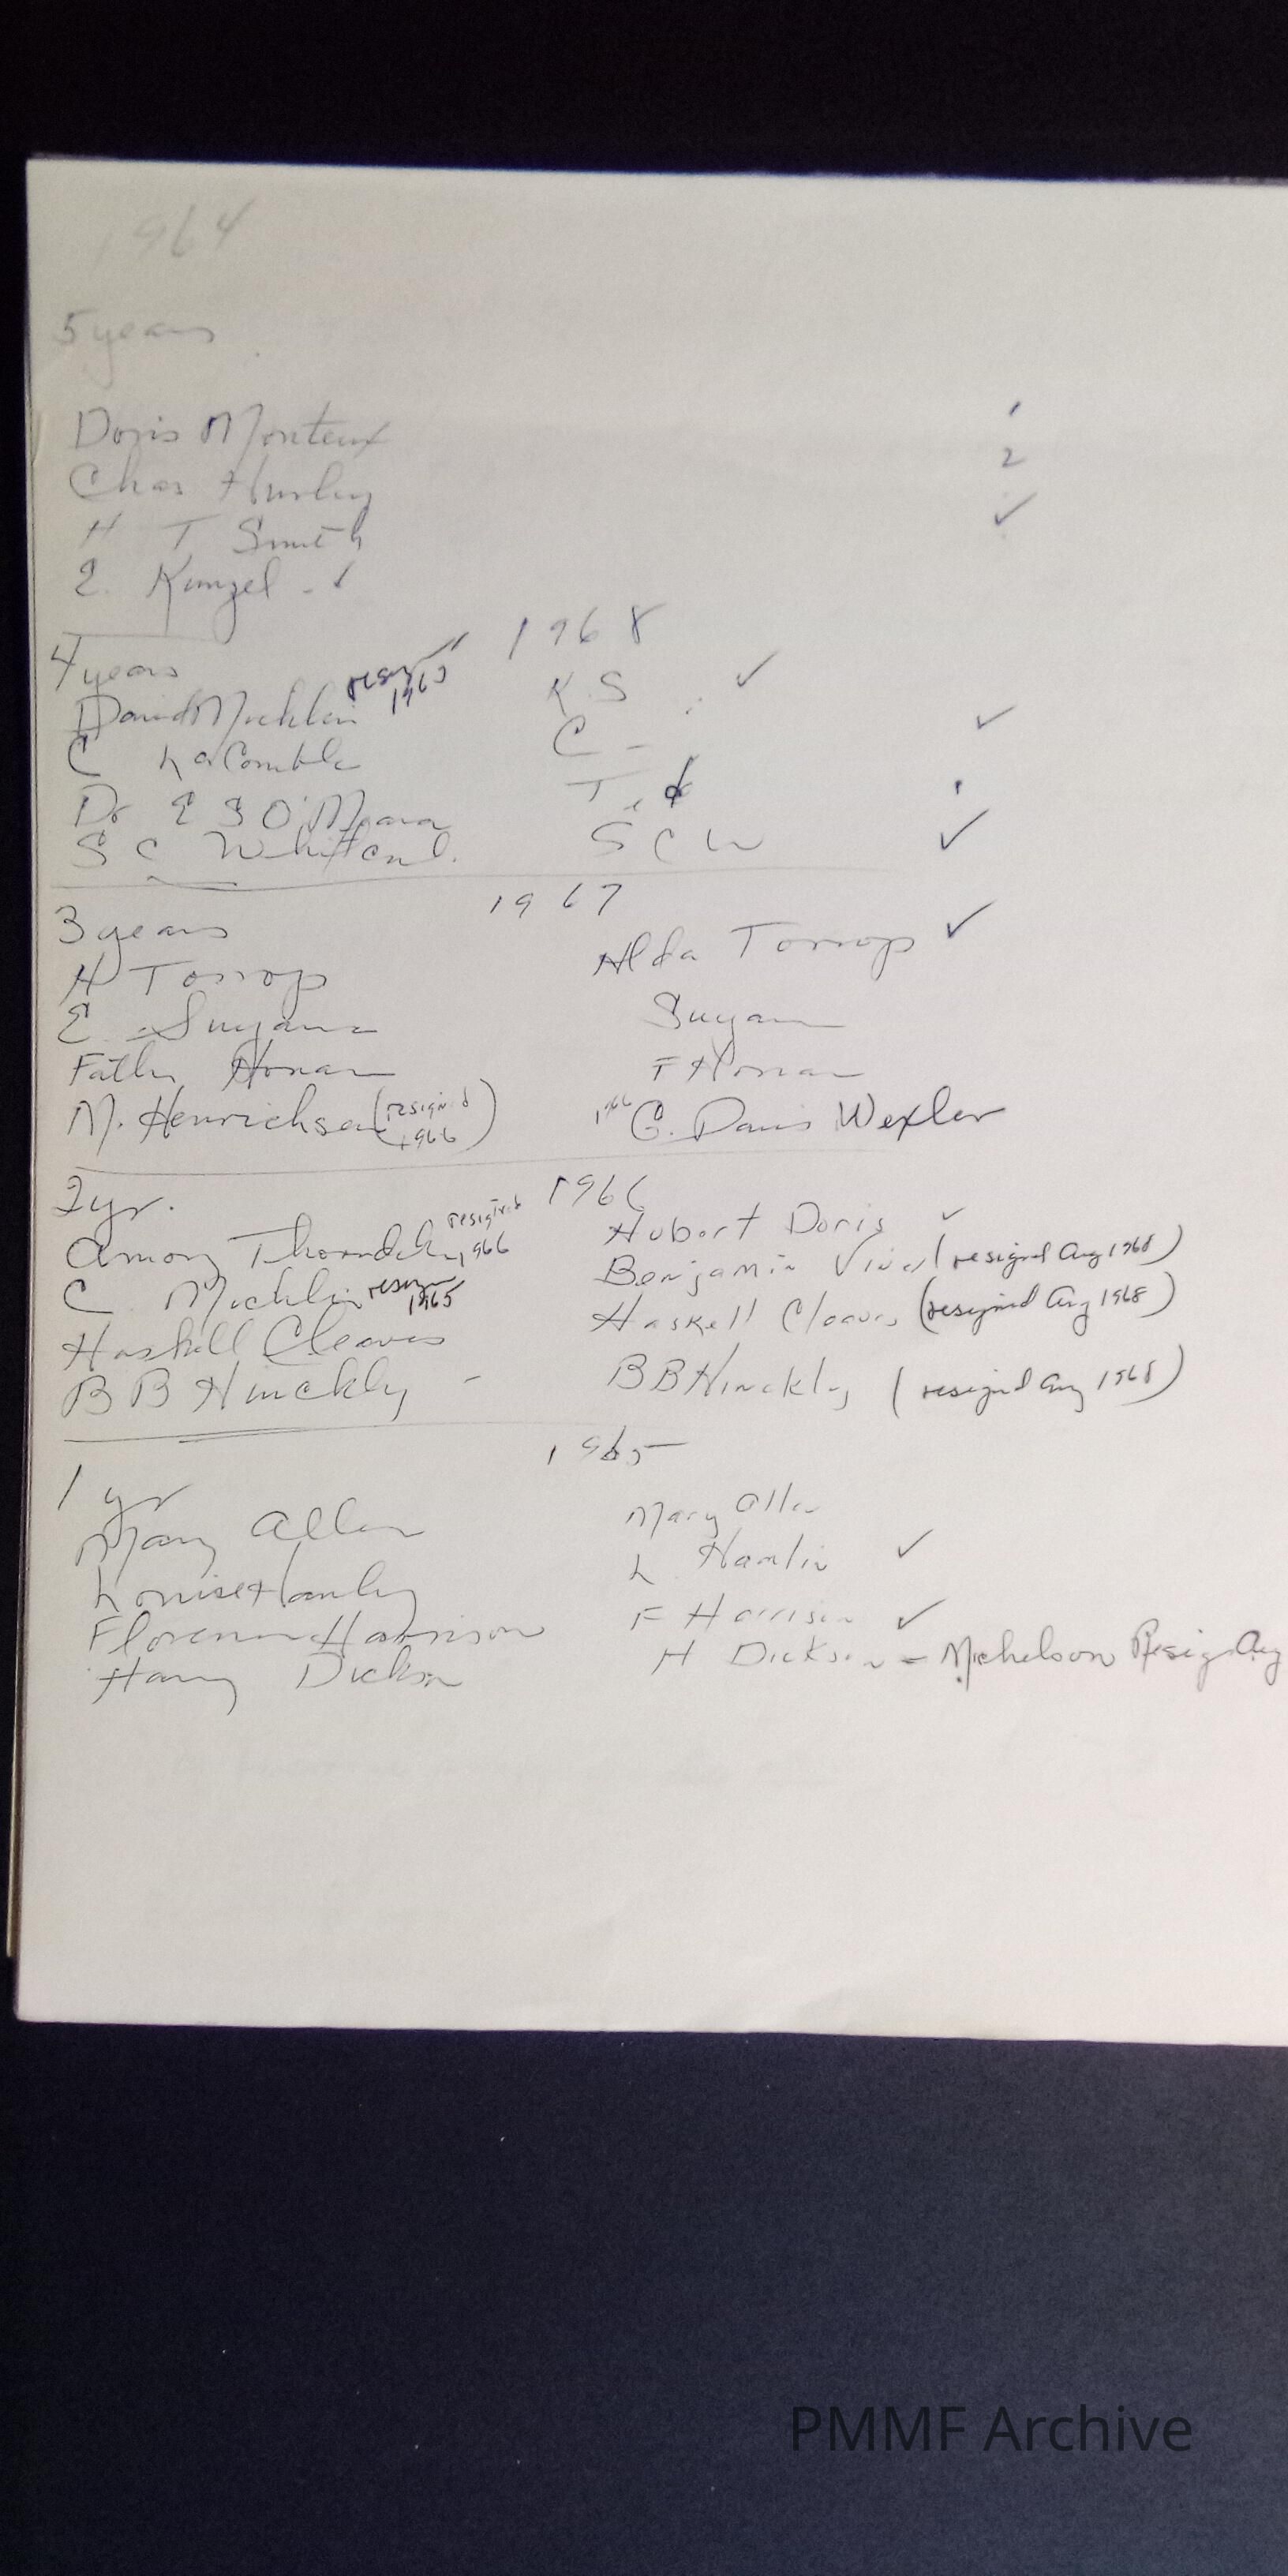 1964
5 years
Doris Monteux
1
Chas Hurley
2
H T Smith ✓
E. Kunzel - ✓
4 years 1968
David Micklin resign 1965 K.S. ✓
C LaCombe C - ✓
Dr E S O'Meara T
S C Whitcomb. S C W ✓
3 years 1967
H Torrop Alda Torrop ✓
E. Suyama Suyam
Father Honan F Honan
M. Henrichsen (resigned 1966) 1966 C. Davis Wexler
2 yr. 1966
Amory Thorndike resigned 1966 Hubert Doris ✓
C. Micklin resign 1965 Benjamin Vinal (resigned Aug 1968)
Haskell Cleaves Haskell Cleaves (resigned Aug 1968)
B B Hinckley - B B Hinckley (resigned Aug 1968)
1 yr 1965
Mary Allen Mary Allen
Louise L. Hamlin ✓
Florence Harrison F Harrison ✓
Harry Dickson H Dickson = Michelson Resign Aug
PMMF Archive